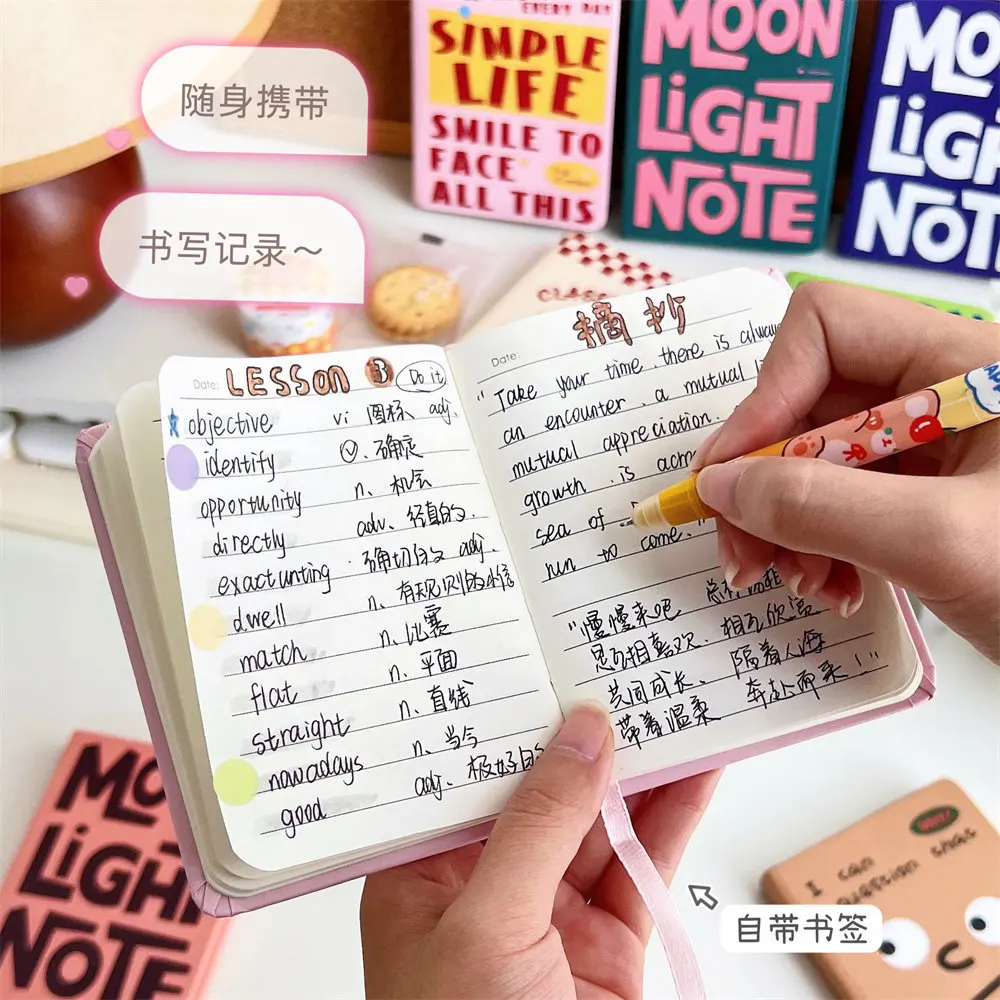 随身携带
书写记录～
EVERY DAY
SIMPLE
LIFE
SMILE TO
FACE
ALL THIS
MOON
LIGHT
NOTE
MOO
LIGH
NOT
CLASS
Date: LESSON 3 Do it
objective vi 图标 adj.
identify 确定
opportunity n. 机会
directly adv. 径直的.
exactunting 确切的 adj.
dwell n. 有规则的
match n. 比赛
flat n. 平面
straight n. 直线
nawadays n. 当今
good adj. 极好的
Date: 摘抄
"Take your time. there is always
an encounter. a mutual
mutual appreciation.
growth. is
sea of
run to come."
"慢慢来吧 总有
是互相喜欢. 相互欣赏
共同成长. 隔着人海
带着温柔 奔赴而来!"
MO
LIGH
NOTE
I can
自带书签